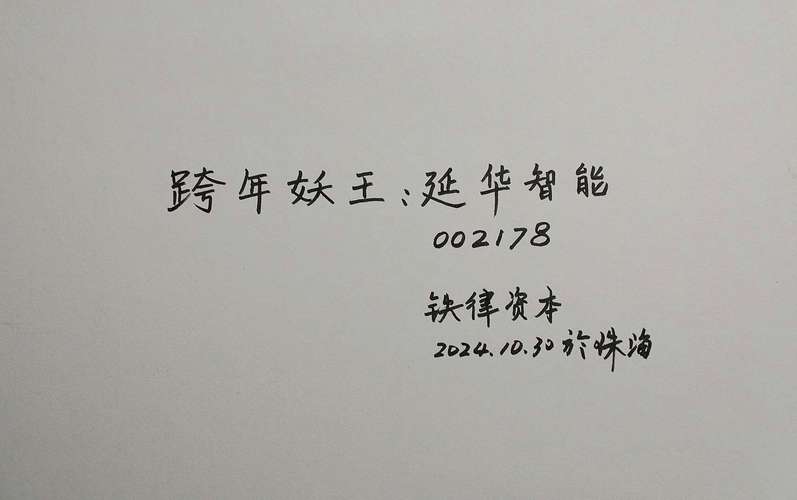 跨年妖王:延华智能
002178
铁律资本
2024.10.30 於珠海